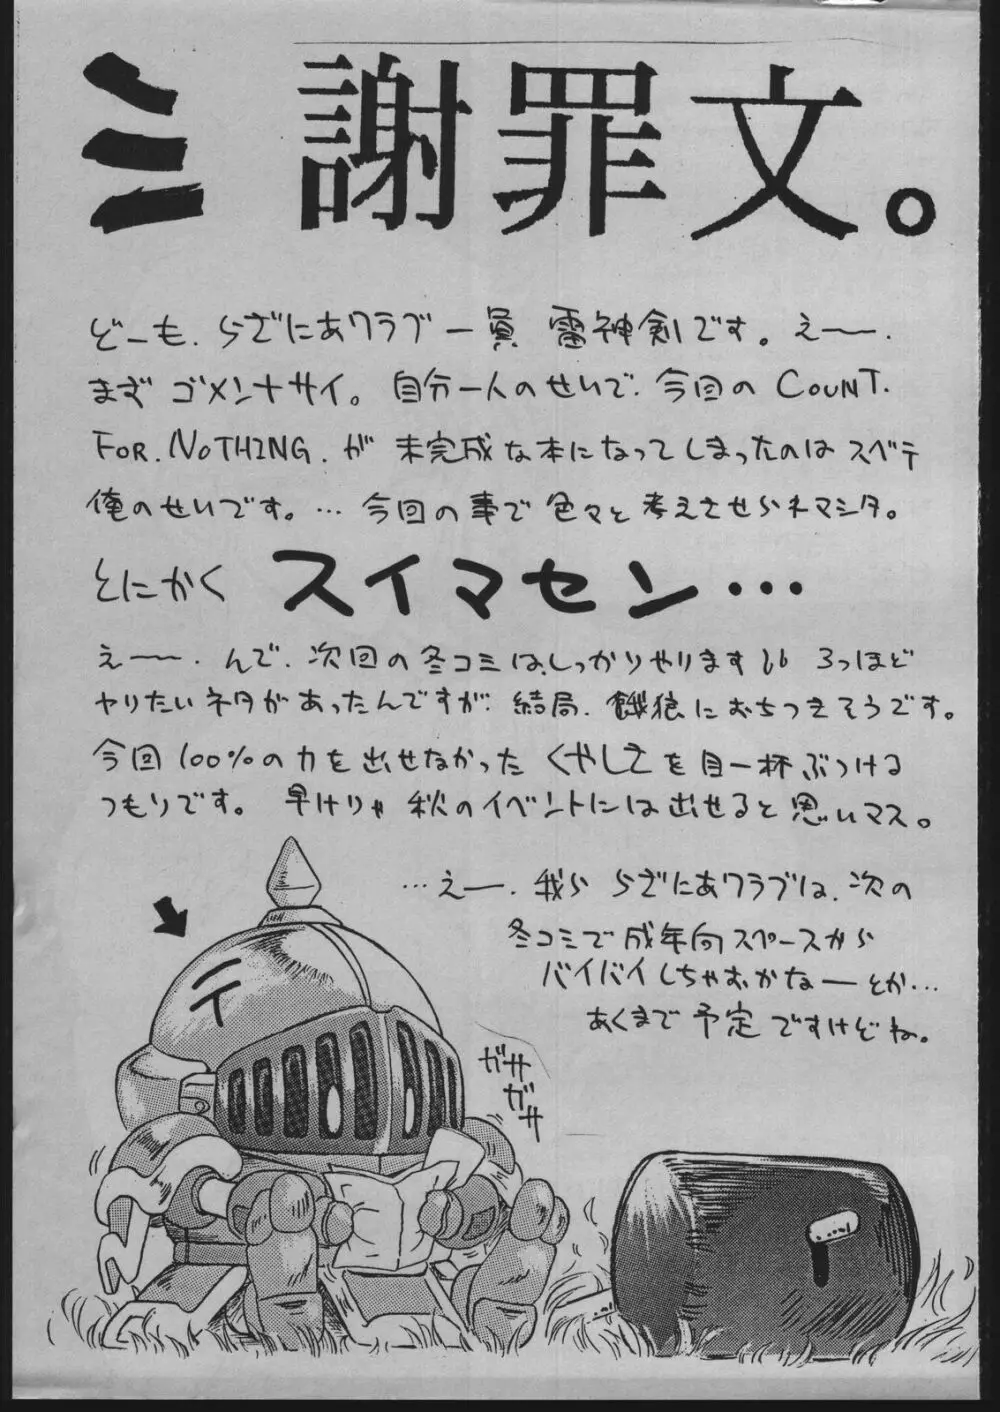 ミ 謝罪文。
どーも、らざにあクラブ一員 雷神剣です。えー、
まず ゴメンナサイ。自分一人のせいで、今回の COUNT.
FOR.NOTHING.が 未完成な本になってしまったのはスベテ
俺のせいです。… 今回の事で色々と考えさせらネマシタ。
とにかく スイマセン…
えー、んで、次回の冬コミは、しっかりやります!! 3つほど
ヤリたいネタがあったんですが、結局、餓狼におちつきそうです。
今回100%の力を出せなかった くやしさを目一杯ぶつける
つもりです。 早けりゃ 秋のイベントには出せると思いマス。
…えー、我ら らざにあクラブは、次の
冬コミで成年向スペースから
バイバイしちゃおかなーとか…
あくまで予定 ですけどね。
ガサ
ガサ